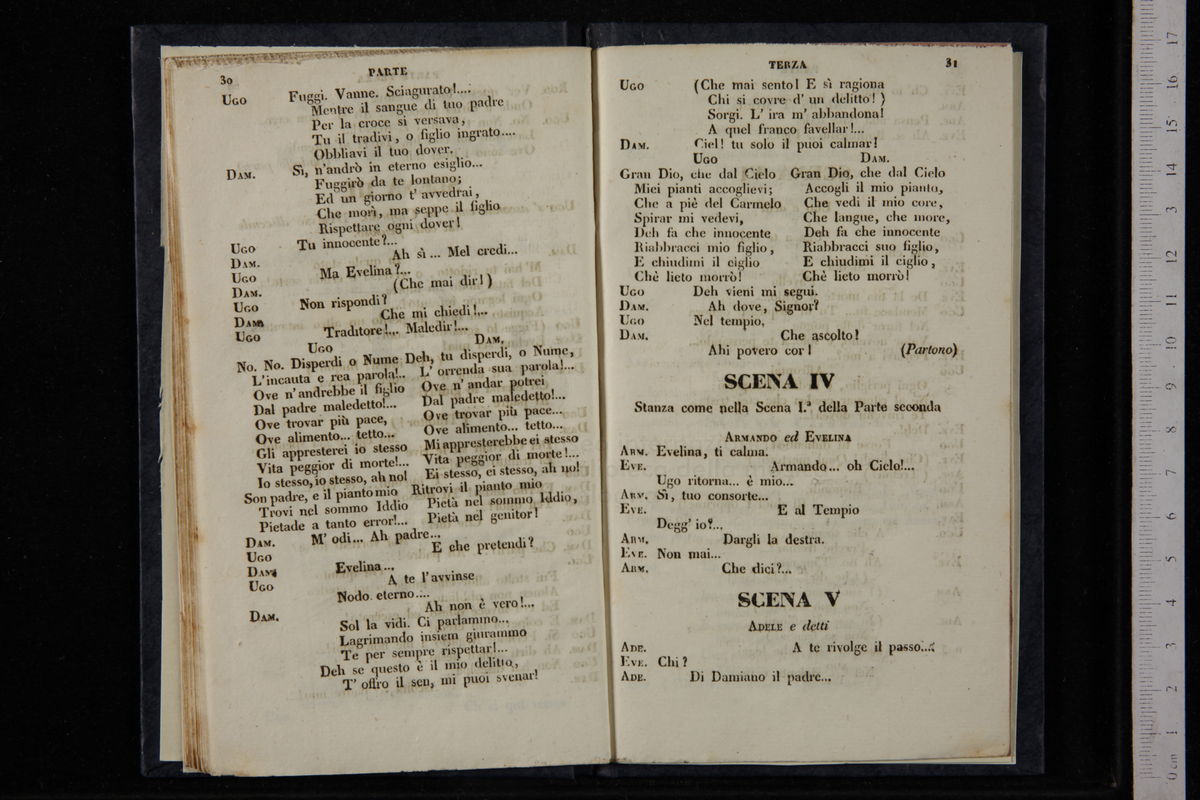 30
PARTE
Ugo Fuggi. Vanne. Sciagurato!....
Mentre il sangue di tuo padre
Per la croce si versava,
Tu il tradivi, o figlio ingrato....
Obbliavi il tuo dover.
Dam. Sì, n'andrò in eterno esiglio...
Fuggirò da te lontano;
Ed un giorno t' avvedrai,
Che morì, ma seppe il figlio
Rispettare ogni dover!
Ugo Tu innocente?...
Dam. Ah sì... Mel credi...
Ugo Ma Evelina?...
Dam. (Che mai dir!)
Ugo Non rispondi?
Dam. Che mi chiedi!...
Ugo Traditore!... Maledir!...
Ugo
No. No. Disperdi o Nume
L'incauta e rea parola!..
Ove n'andrebbe il figlio
Dal padre maledetto!...
Ove trovar più pace,
Ove alimento... tetto...
Gli appresterei io stesso
Vita peggior di morte!...
Io stesso, io stesso, ah no!
Son padre, e il pianto mio
Trovi nel sommo Iddio
Pietade a tanto error!...
Dam.
Deh, tu disperdi, o Nume,
L' orrenda sua parola!...
Ove n' andar potrei
Dal padre maledetto!...
Ove trovar più pace...
Ove alimento... tetto...
Mi appresterebbe ei stesso
Vita peggior di morte!...
Ei stesso, ei stesso, ah no!
Ritrovi il pianto mio
Pietà nel sommo Iddio,
Pietà nel genitor!
Dam. M' odi... Ah padre...
Ugo E che pretendi?
Dam. Evelina...
Ugo A te l'avvinse
Nodo eterno....
Dam. Ah non è vero!...
Sol la vidi. Ci parlammo...
Lagrimando insiem giurammo
Te per sempre rispettar!...
Deh se questo è il mio delitto,
T' offro il sen, mi puoi svenar!
TERZA
31
Ugo (Che mai sento! E sì ragiona
Chi si covre d' un delitto!)
Sorgi. L' ira m' abbandona!
A quel franco favellar!...
Dam. Ciel! tu solo il puoi calmar!
Ugo
Gran Dio, che dal Cielo
Miei pianti accoglievi;
Che a piè del Carmelo
Spirar mi vedevi,
Deh fa che innocente
Riabbracci mio figlio,
E chiudimi il ciglio
Chè lieto morrò!
Dam.
Gran Dio, che dal Cielo
Accogli il mio pianto,
Che vedi il mio core,
Che langue, che more,
Deh fa che innocente
Riabbracci suo figlio,
E chiudimi il ciglio,
Chè lieto morrò!
Ugo Deh vieni mi segui.
Dam. Ah dove, Signor?
Ugo Nel tempio.
Dam. Che ascolto!
Ahi povero cor! (Partono)
SCENA IV
Stanza come nella Scena I.ª della Parte seconda
Armando ed Evelina
Arm. Evelina, ti calma.
Eve. Armando... oh Cielo!...
Ugo ritorna... è mio...
Arm. Sì, tuo consorte...
Eve. E al Tempio
Degg' io?...
Arm. Dargli la destra.
Eve. Non mai...
Arm. Che dici?...
SCENA V
Adele e detti
Ade. A te rivolge il passo...
Eve. Chi?
Ade. Di Damiano il padre...
0 cm 1 2 3 4 5 6 7 8 9 10 11 12 13 14 15 16 17